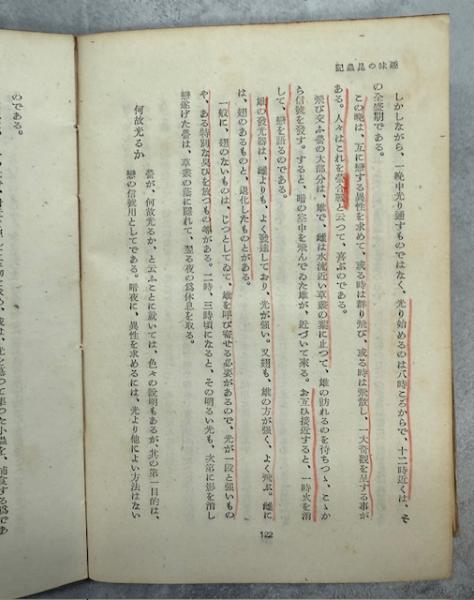 趣味の昆蟲記
しかしながら、一晩中光り通すものではなく、光り始めるのは八時ころからで、十二時近くは、そ
の全盛期である。
この晩は、互に戀する異性を求めて、或る時は群り飛び、或る時は飛散し、一大奇觀を呈する事が
ある。人々はこれを螢合戰と云つて、喜ぶのである。
飛び交ふ螢の大部分は、雄で、雌は水流近い草叢の葉に止つて、雄の訪れるのを待ちつゝ、こゝか
ら信號を發す。すると、暗の空中を飛んでゐた雄が、近づいて來る。お互ひ接近すると、一時火を消
して、戀を語るのである。
雄の發光器は、雌よりも、よく發達しており、光が強い。又翅も、雄の方が強く、よく飛ぶ。雌に
は、翅のあるものと、退化したものとがある。
一般に、翅のないものは、じつとしてゐて、雄を呼び寄せる必要があるので、光が一段と強いもの
や、ある特別な臭ひを放つもの等がある。二時、三時頃になると、その明るい光も、次第に影を消し
戀遂げた螢は、草叢の葉に隱れて、翌る夜の爲休息を取る。
何故光るか
螢が、何故光るか、と云ふことに就いては、色々の説明もあるが、其の第一目的は、
戀の信號用としてである。暗夜に、異性を求めるには、光より他によい方法はない
122
のである。